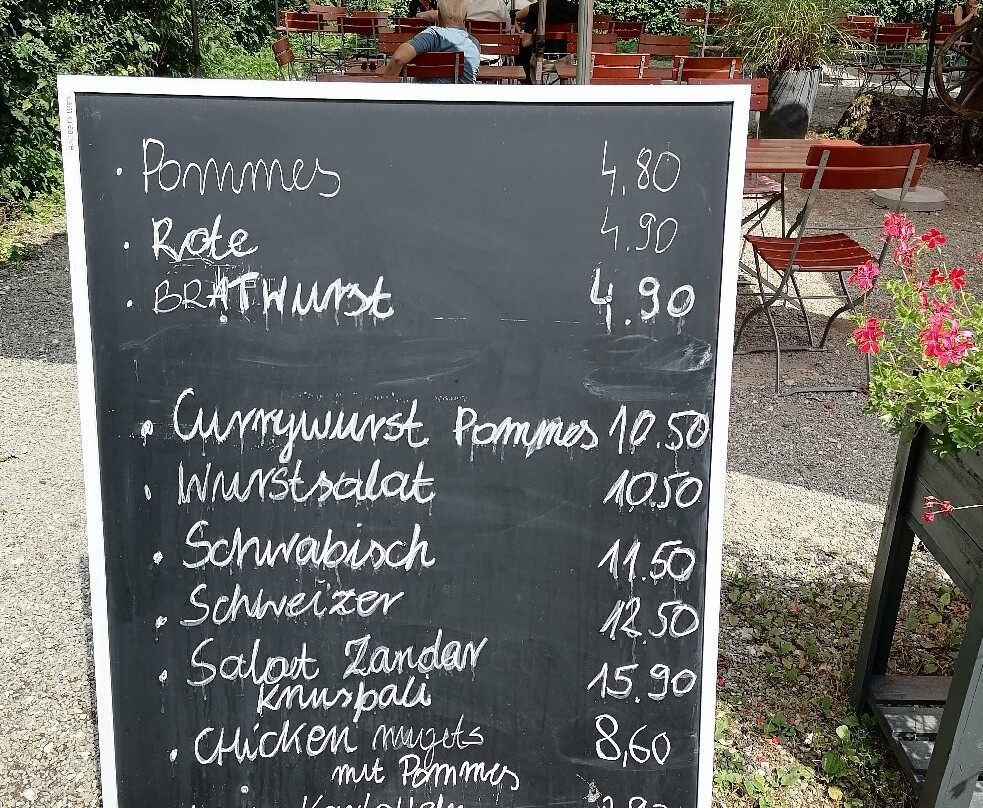 · Pommes 4.80
· Rote 4.90
· BRATWurst 4.90
· Currywurst Pommes 10.50
· Wurstsalat 10.50
· Schwabisch 11.50
· Schweizer 12.50
· Salat Zandar 15.90
knuspali
· CHicken nugets 8,60
mit Pommes